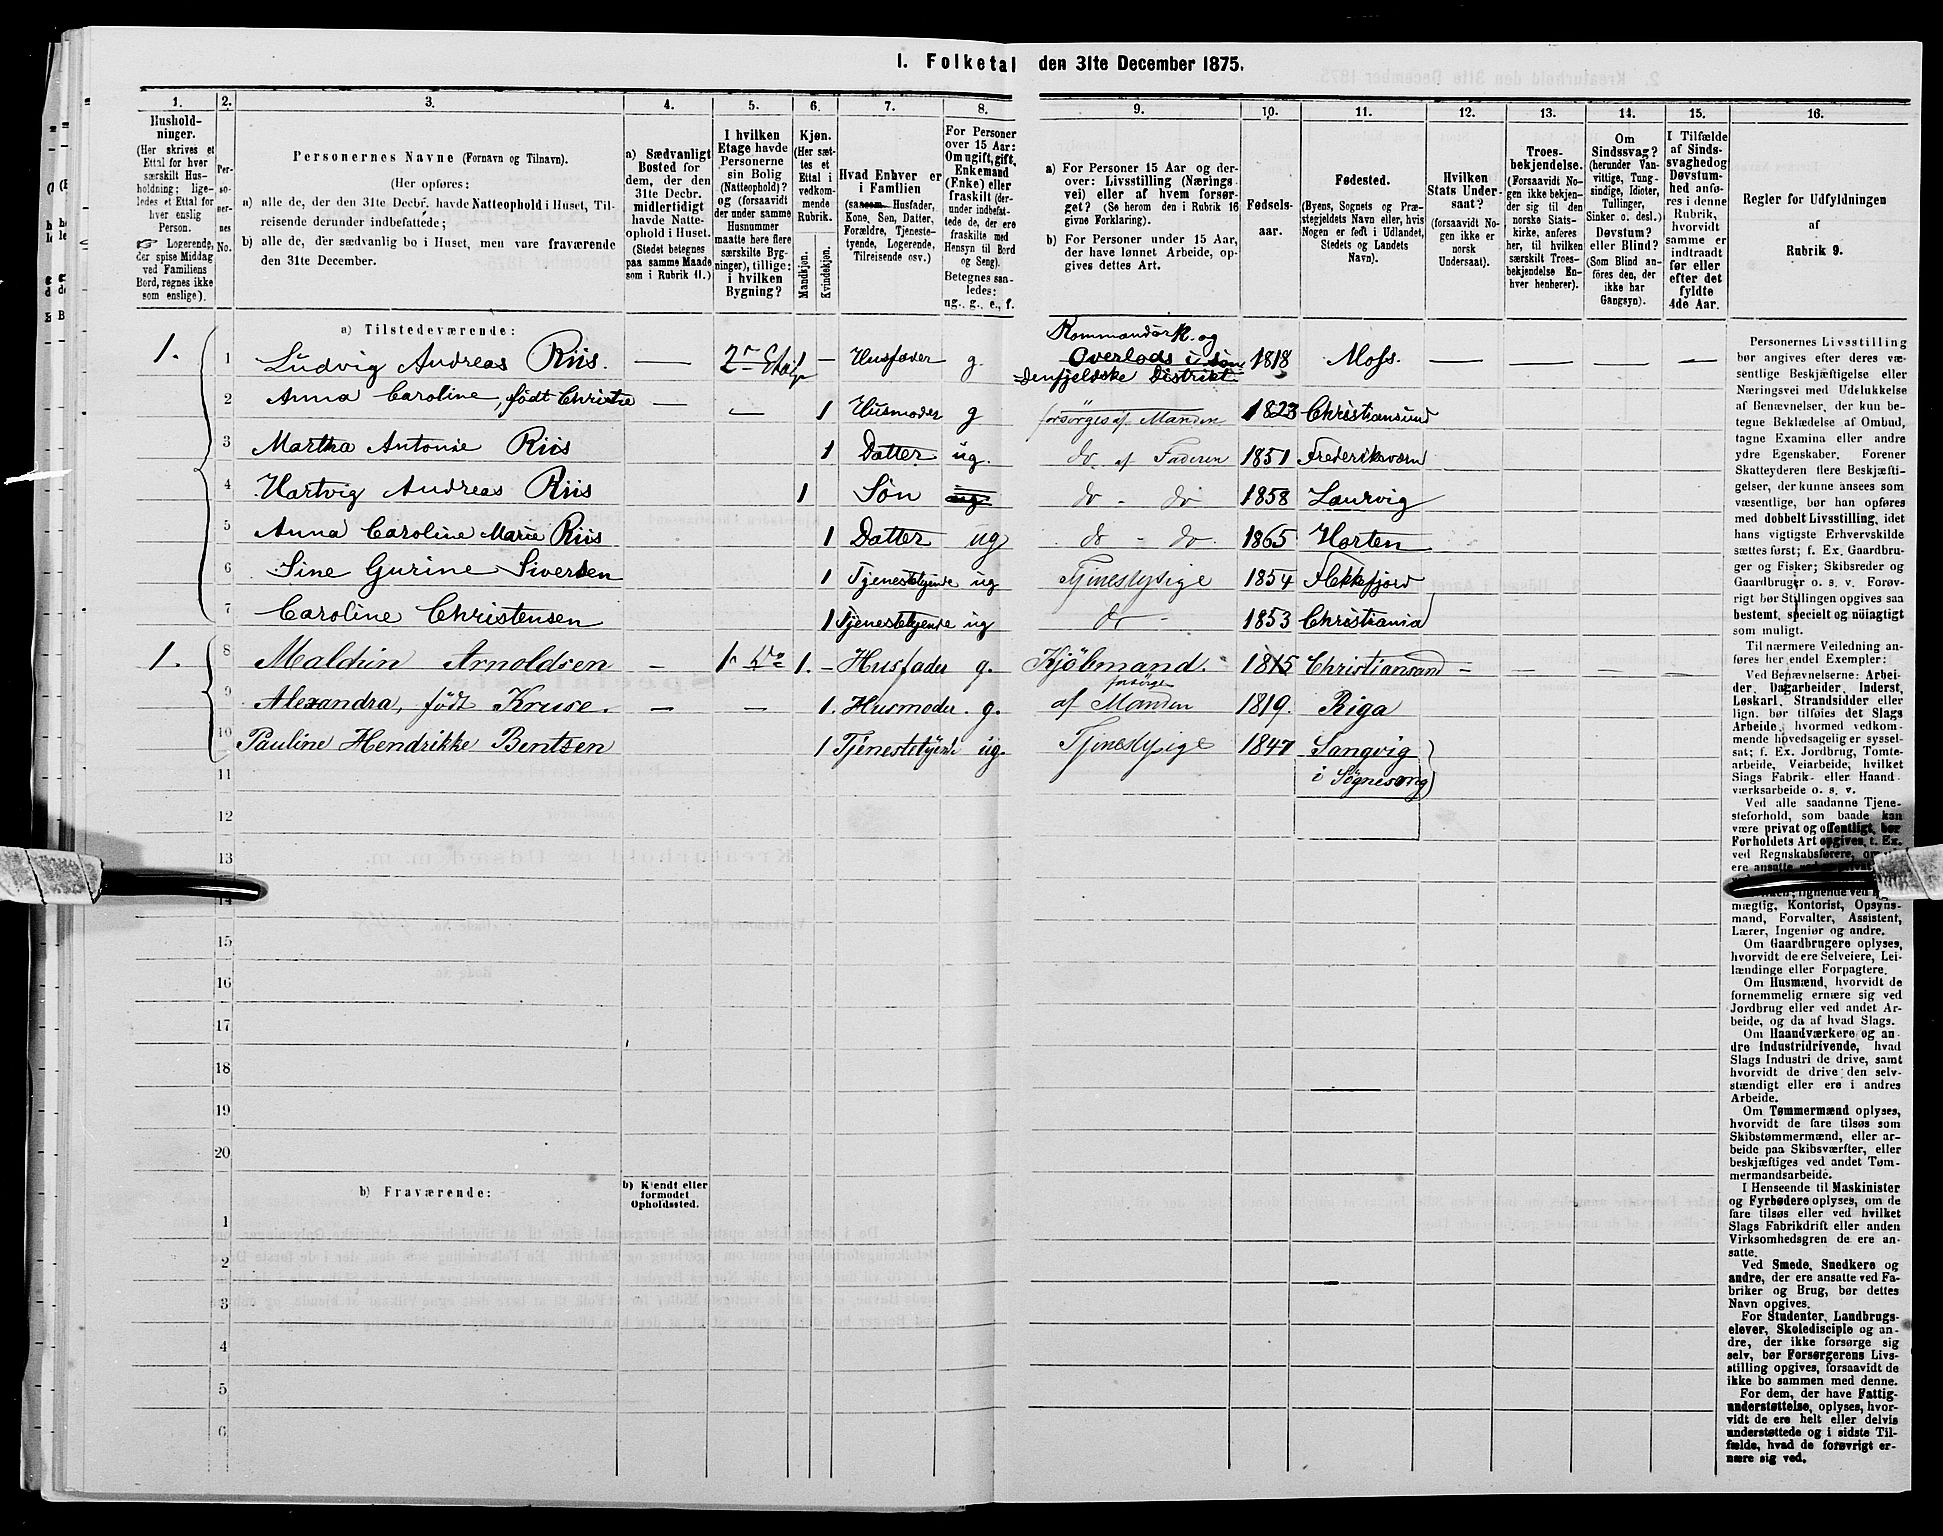 1. Folketal den 31te December 1875.
1. 2. 3. 4. 5. 6. 7. 8. 9. 10. 11. 12. 13. 14. 15. 16.
Hushold-
ninger.
(Her skrives et
Ettal for hver
særskilt Hus-
holdning; lige-
ledes et Ettal for
hver enslig
Person.
☞ Logerende,
der spise Middag
ved Familiens
Bord, regnes ikke
som enslige).
Per-
so-
ner-
nes
No.
Personernes Navne (Fornavn og Tilnavn).
(Her opføres:
a) alle de, der den 31te Decbr. havde Natteophold i Huset, Til-
reisende derunder indbefattede;
b) alle de, der sædvanlig bo i Huset, men vare fraværende
den 31te December.
a) Sædvanligt
Bosted for
dem, der den
31te Decbr.
midlertidigt
havde Natte-
ophold i Huset.
(Stedet betegnes
paa samme Maade
som i Rubrik 11.)
I hvilken
Etage havde
Personerne
sin Bolig
(Natteophold)?
og (forsaavidt
der under samme
Husnummer
maatte høre flere
særskilte Byg-
ninger), tillige:
i hvilken
Bygning?
Kjøn.
(Her sæt-
tes et
Ettal i
vedkom-
mende
Rubrik.
Mandkjøn.
Kvindekjøn.
Hvad Enhver er
i Familien
(saasom Husfader,
Kone, Søn, Datter,
Forældre, Tjeneste-
tyende, Logerende,
Tilreisende osv.)
For Personer
over 15 Aar:
Om ugift, gift,
Enkemand
(Enke) eller
fraskilt (der-
under indbefat-
tede de, der ere
fraskilte med
Hensyn til Bord
og Seng).
Betegnes saa-
ledes:
ug., g., e., f.
a) For Personer 15 Aar og der-
over: Livsstilling (Nærings-
vei) eller af hvem forsør-
get? (Se herom den i Rubrik 16
givne Forklaring).
b) For Personer under 15 Aar,
der have lønnet Arbeide, op-
gives dettes Art.
Fødsels-
aar.
Fødested.
(Byens, Sognets og Præ-
stegjeldets Navn eller, hvis
Nogen er født i Udlandet,
Stedets og Landets
Navn).
Hvilken
Stats Under-
saat?
(forsaavidt No-
gen ikke er
norsk
Undersaat).
Troes-
bekjendelse.
(Forsaavidt No-
gen ikke bekjen-
der sig til den
norske Stats-
kirke, anføres
her, til hvilken
særskilt Troes-
bekjendelse En-
hver henhører).
Om
Sindssvag?
(herunder Van-
vittige, Tung-
sindige, Idioter,
Tullinger,
Sinker o. desl.)
Døvstum?
eller Blind?
(Som Blind an-
føres den, der
ikke har
Gangsyn).
I Tilfælde
af Sinds-
svaghed og
Døvstum-
hed anfø-
res i denne
Rubrik,
hvorvidt
samme er
indtraadt
før eller
efter det
fyldte
4de Aar.
Regler for Udfyldningen
af
Rubrik 9.
a) Tilstedeværende:
1. 1 Ludvig Andreas Riis. — 2den Etage 1 — Husfader g. Kommandørk. og Overlods i søndenfjeldske Distrikt 1818 Moss. — — — —
2 Anna Caroline, født Christie — — 1 Husmoder g forsørges af Manden 1823 Christiansund
3 Martha Antonie Riis 1 Datter ug. do. af Faderen 1851 Frederiksværn
4 Hartvig Andreas Riis 1 Søn ug do - do 1858 Laurvig
5 Anna Caroline Marie Riis 1 Datter ug do - do. 1865 Horten
6 Sine Gurine Sivertsen 1 Tjenestetyende ug Tjenestepige 1854 Flekkefjord
7 Caroline Christensen 1 Tjenestetyende ug do - 1853 Christiania
1. 8 Malchin Arnoldsen — 1. Do 1. — Husfader g. Kjøbmand. 1815 Christiansand — — — —
9 Alexandra, født Kruse. — — 1. Husmoder. g. forsørges af Manden 1819. Riga
10 Pauline Hendrikke Bentsen 1 Tjenestetyende ug. Tjenestepige 1847 Langvig
i Søgnesogn
11
12
13
14
15
16
17
18
19
20
b) Fraværende:
b) Kjendt eller
formodet
Opholdssted.
1
2
3
4
5
6
Personernes Livsstilling
bør angives efter deres væ-
sentlige Beskjæftigelse eller
Næringsvei med Udelukkelse
af Benævnelser, der kun be-
tegne Beklædelse af Ombud,
tagne Examina eller andre
ydre Egenskaber. Forener
Skatteyderen flere Beskjæfti-
gelser, der kunne ansees som
væsentlige, bør han opføres
med dobbelt Livsstilling, idet
hans vigtigste Erhvervskilde
sættes først; f. Ex. Gaardbru-
ger og Fisker; Skibsreder og
Gaardbruger o. s. v. Forøv-
rigt bør Stillingen opgives saa
bestemt, specielt og nøiagtigt
som muligt.
Til nærmere Veiledning an-
føres her endel Exempler:
Ved Benævnelserne: Arbei-
der, Dagarbeider, Inderst,
Løskarl, Strandsidder eller
lign. bør tilføies det Slags
Arbeide, hvormed vedkom-
mende hovedsagelig er syssel-
sat; f. Ex. Jordbrug, Tomte-
arbeide, Veiarbeide, hvilket
Slags Fabrik- eller Haand-
værksarbeide o. s. v.
Ved alle saadanne Tjene-
steforhold, som baade kan
være privat og offentligt, bør
Forholdets Art opgives, t. Ex.
ved Regnskabsførere,
mægtig, Kontorist, Opsyns-
mand, Forvalter, Assistent,
Lærer, Ingeniør og andre.
Om Gaardbrugere oplyses,
hvorvidt de ere Selveiere, Lei-
lændinge eller Forpagtere.
Om Husmænd, hvorvidt de
fornemmelig ernære sig ved
Jordbrug eller ved andet Ar-
beide, og da af hvad Slags.
Om Haandværkere og an-
dre Industridrivende, hvad
Slags Industri de drive, samt
hvorvidt de drive den selv-
stændigt eller ere i andres
Arbeide.
Om Tømmermænd oplyses,
hvorvidt de fare tilsøs som
Skibstømmermænd, eller ar-
beide paa Skibsværfter, eller
beskjæftiges ved andet Tøm-
mermandsarbeide.
I Henseende til Maskinister
og Fyrbødere oplyses, om de
fare tilsøs eller ved hvilket
Slags Fabrikdrift eller anden
Virksomhedsgren de ere an-
satte.
Ved Smede, Snedkere og
andre, der ere ansatte ved Fa-
briker og Brug, bør dettes
Navn opgives.
For Studenter, Landbrugs-
elever, Skoledisciple og an-
dre, der ikke forsørge sig
selv, bør Forsørgerens Livs-
stilling opgives, forsaavidt de
ikke bo sammen med denne.
For dem, der have Fattig-
understøttelse, oplyses, hvor-
vidt de ere helt eller delvis
understøttede og i sidste Til-
fælde, hvad de forøvrigt er-
nære sig ved.